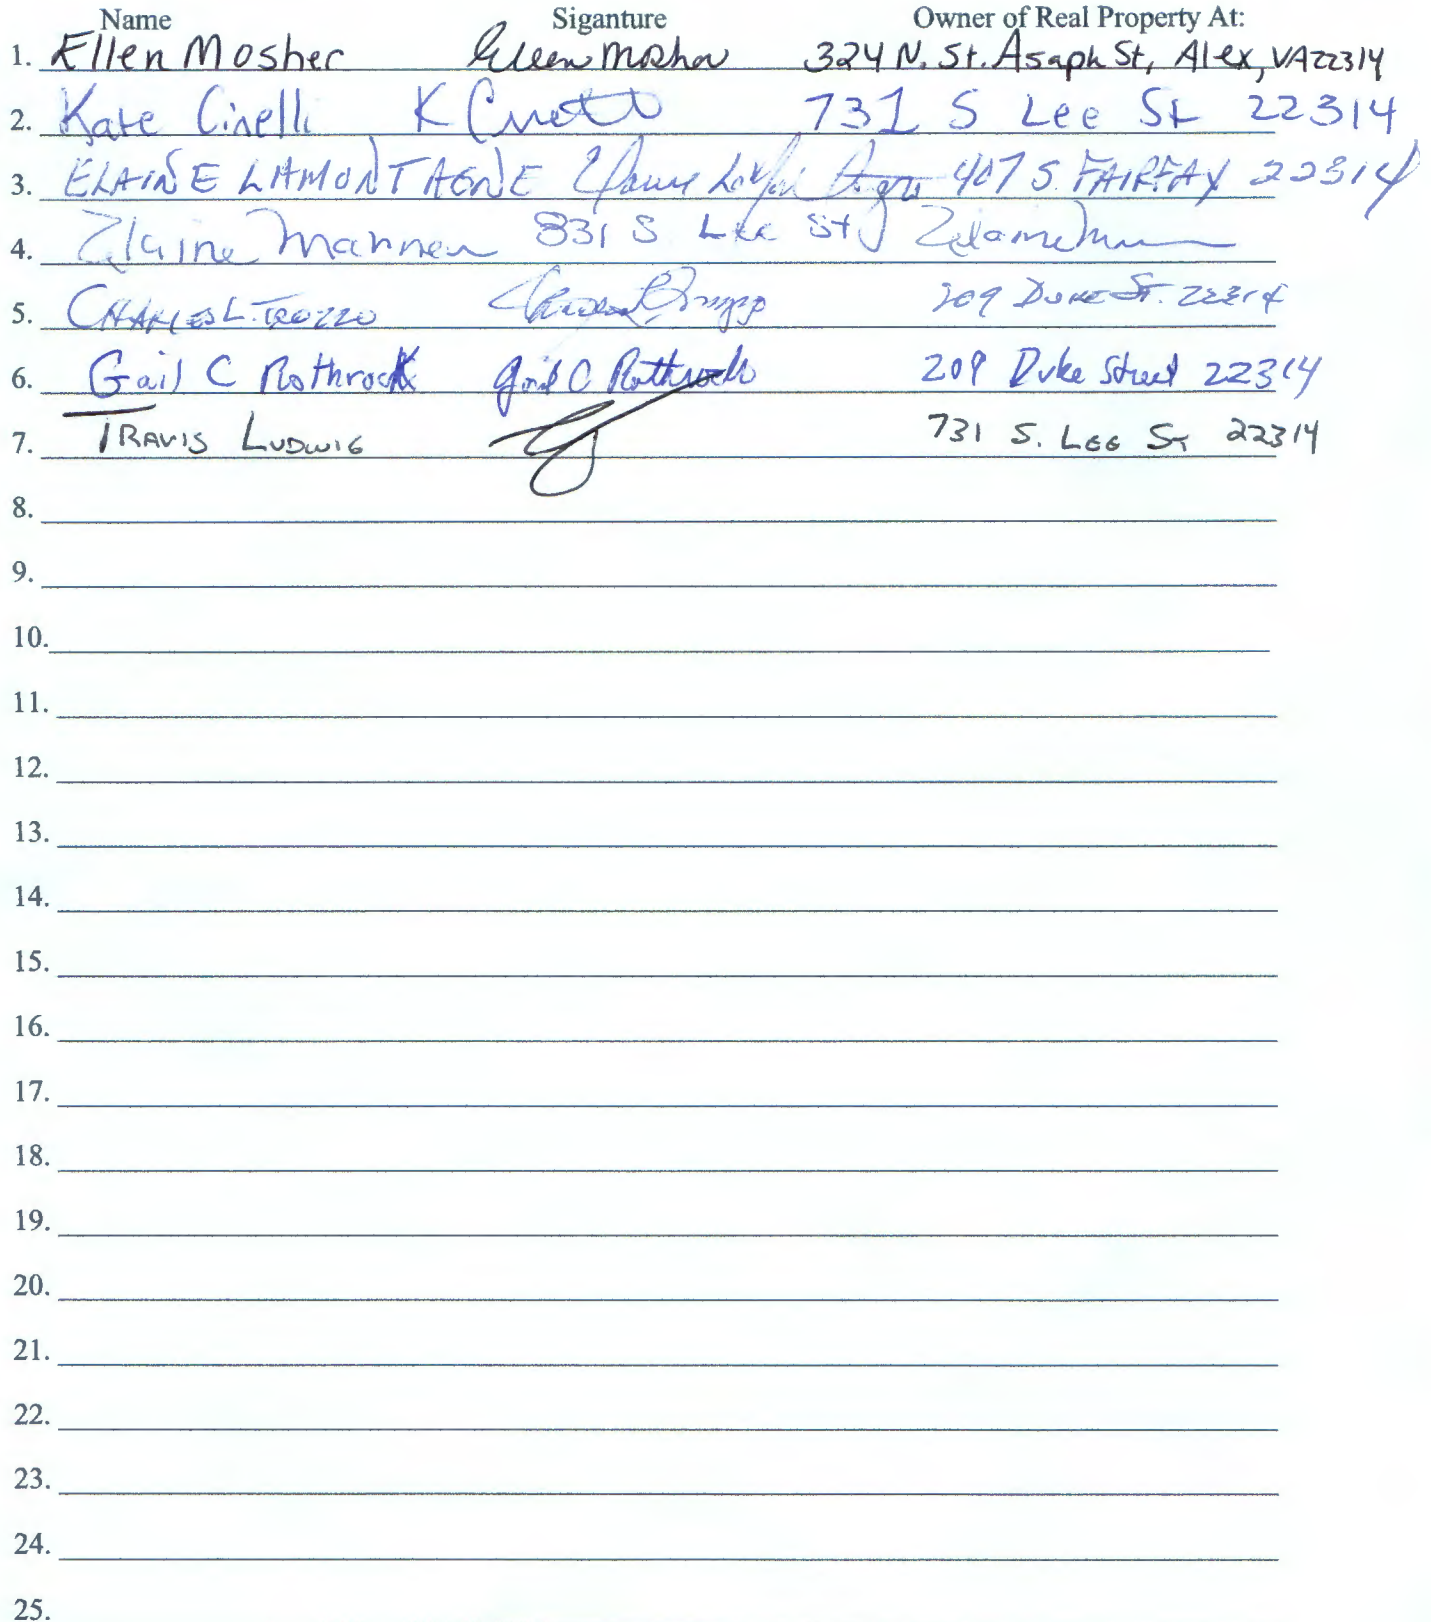 Name Siganture Owner of Real Property At:
1. Ellen Mosher Ellen Mosher 324 N. St. Asaph St, Alex, VA 22314
2. Kate Cinelli K Cinelli 731 S Lee St 22314
3. ELAINE LAMONTAGNE Elaine LaMontagne 407 S. FAIRFAX 22314
4. Elaine Mannen 831 S Lee St
5. CHARLES L. TROZZO 209 DUKE ST. 22314
6. Gail C Rothrock Gail C Rothrock 209 Duke Street 22314
7. TRAVIS LUDWIG 731 S. LEE ST 22314
8.
9.
10.
11.
12.
13.
14.
15.
16.
17.
18.
19.
20.
21.
22.
23.
24.
25.